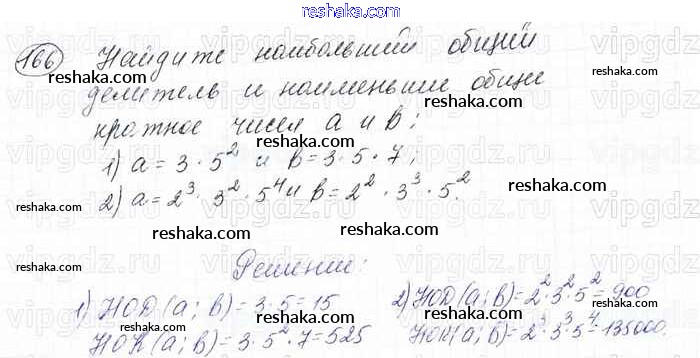 reshaka.ru
166 Найдите наибольший общий
делитель и наименьшие общие
кратное чисел a и b:
1) a = 3 · 5² и b = 3 · 5 · 7;
2) a = 2³ · 3² · 5⁴ и b = 2² · 3³ · 5².
Решение:
1) НОД (a; b) = 3 · 5 = 15
НОК (a; b) = 3 · 5² · 7 = 525
2) НОД (a; b) = 2² · 3² · 5² = 900
НОК (a; b) = 2³ · 3³ · 5⁴ = 135000.
reshaka.ru
vipgdz.ru